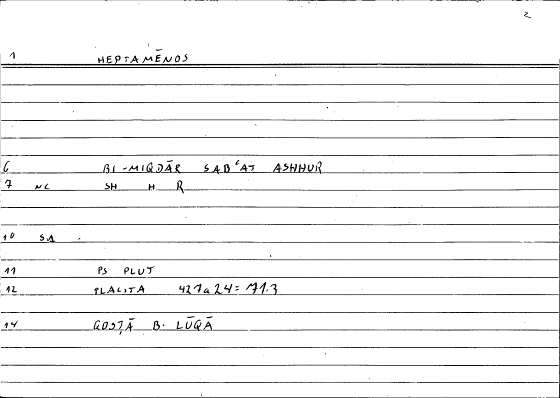 2
1 HEPTAMĒNOS
6 BI-MIQDĀR SABʿAT ASHHUR
7 NL SH H R
10 SA
11 PS PLUT
12 PLACITA 427a24 = 71.3
14 QOSṬĀ B. LŪQĀ